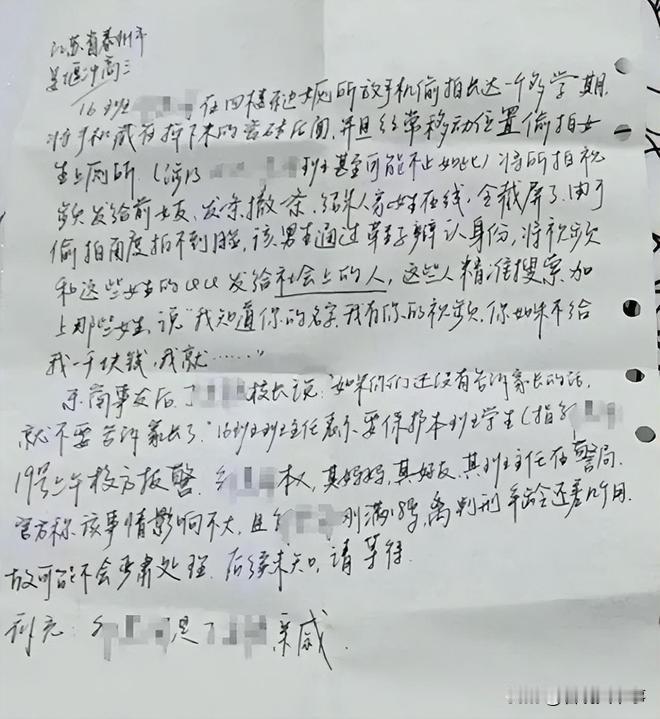 江苏省泰州市
姜堰中高三
16班 在四楼左边女厕所放手机偷拍长达一个多学期.
将手机藏在掉下来的瓷砖后间,并且经常移动位置偷拍女
生上厕所 (涉及 班甚至可能不止如此) 将所拍视
频发给前女友,发一条撤一条,女生在线,全截屏了.由于
偷拍角度拍不到脸,该男生通过鞋子辩认身份,将视频
和这些女生的QQ发给社会上的人,这些人精准搜索,加
上那些女生,说"我知道你的名字,我有你的视频,你如果不给
我一千块钱,我就……"
东窗事发后,丁 校长说:"如果你们还没有告诉家长的话,
就不要告诉家长了."16班班主任表示要保护本班学生(指
19号上午校方报警. 本人,其妈妈,其好友,其班主任在警局.
官方称该事情影响不大,且 刚满18岁,离判刑年龄还差几个月.
故可能不会严肃处理.后续未知,请等待.
补充: 是丁 亲戚.